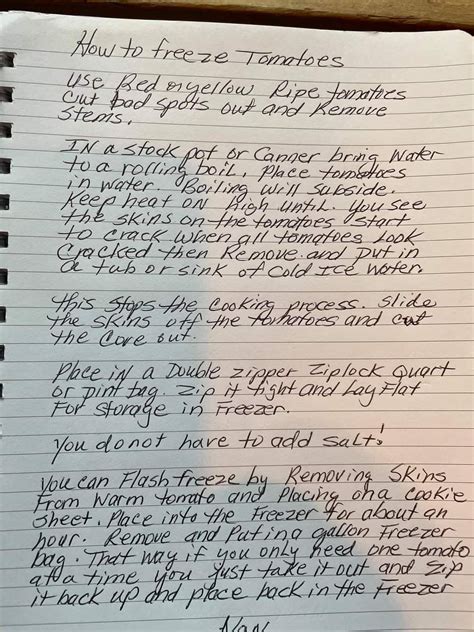 How to freeze Tomatoes
Use Red or yellow Ripe tomatoes
cut bad spots out and Remove
Stems.
In a stock pot or Canner bring water
to a rolling boil. Place tomatoes
in water. Boiling will subside.
Keep heat on High until you see
the skins on the tomatoes start
to crack when all tomatoes Look
Cracked then Remove and put in
a tub or sink of Cold Ice Water.
this stops the cooking process. Slide
the skins off the tomatoes and cut
the core out.
Place in a Double zipper Ziplock Quart
or pint bag. Zip it tight and Lay Flat
For Storage in Freezer.
You do not have to add Salt!
You can Flash freeze by Removing Skins
From warm tomato and Placing on a cookie
Sheet, Place into the Freezer for about an
hour. Remove and Put in a gallon Freezer
bag. That way if you only need one tomato
at a time you just take it out and zip
it back up and place back in the Freezer
Nan